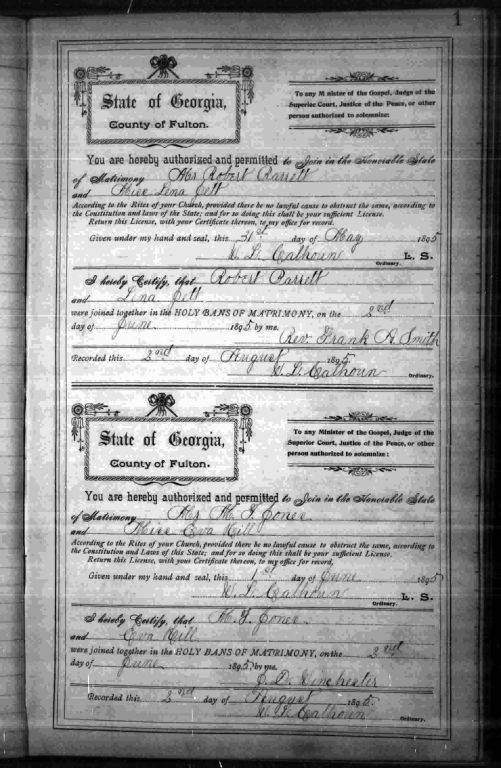 1
State of Georgia,
County of Fulton.
To any Minister of the Gospel, Judge of the
Superior Court, Justice of the Peace, or other
person authorized to solemnize:
You are hereby authorized and permitted to Join in the Honorable State
of Matrimony Mr Robert Parrett
and Miss Lena
According to the Rites of your Church, provided there be no lawful cause to obstruct the same, according to
the Constitution and laws of the State; and for so doing this shall be your sufficient License.
Return this License, with your Certificate thereon, to my office for record.
Given under my hand and seal, this 31st day of May 1895
W. L. Calhoun L. S.
Ordinary.
I hereby Certify, that Robert Parrett
and Lena
were joined together in the HOLY BANS OF MATRIMONY, on the 2nd
day of June 1895 by me.
Rev. Frank A. Smith
Recorded this 2nd day of August 1895
W. L. Calhoun
Ordinary.
State of Georgia,
County of Fulton.
To any Minister of the Gospel, Judge of the
Superior Court, Justice of the Peace, or other
person authorized to solemnize:
You are hereby authorized and permitted to Join in the Honorable State
of Matrimony Mr M. Jones
and Miss Eva Hill
According to the Rites of your Church, provided there be no lawful cause to obstruct the same, according to
the Constitution and Laws of this State; and for so doing this shall be your sufficient License.
Return this License, with your Certificate thereon, to my office for record,
Given under my hand and seal, this 1st day of June 1895
W. L. Calhoun L. S.
Ordinary.
I hereby Certify, that M. Jones.
and Eva Hill
were joined together in the HOLY BANS OF MATRIMONY, on the 2nd
day of June 1895 by me.
D. Winchester
Recorded this 2nd day of August 1895.
W. L. Calhoun
Ordinary.